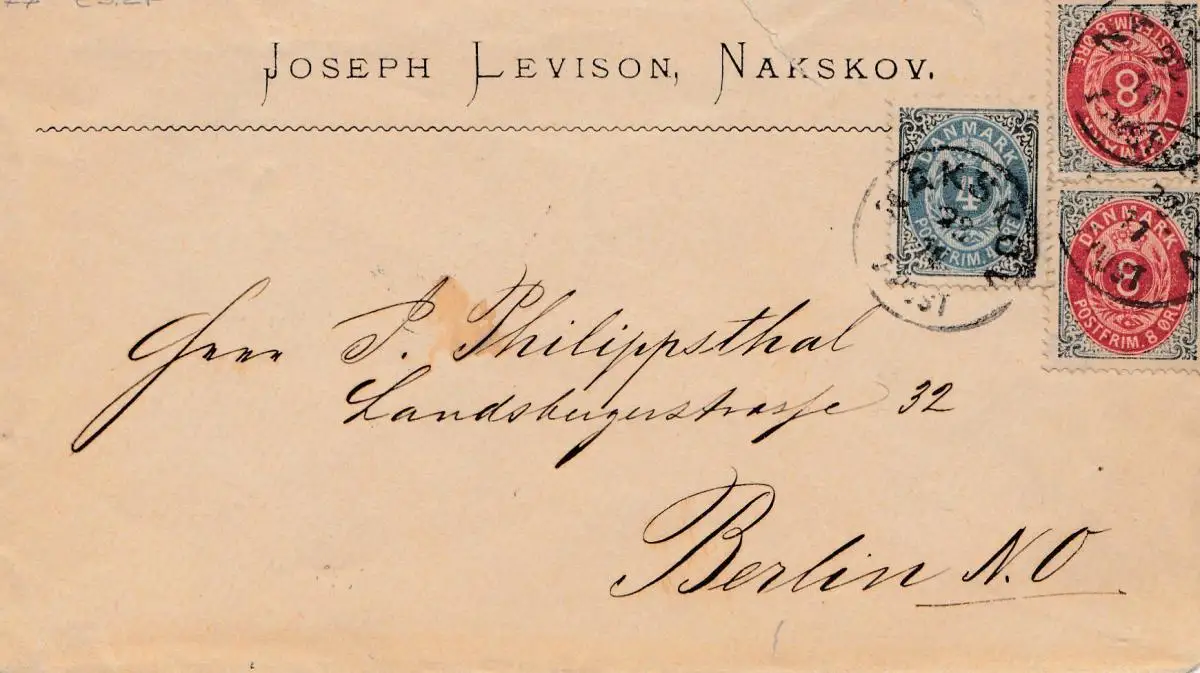 JOSEPH LEVISON, NAKSKOV.
DANMARK
4
POSTFRIM. 4 ØRE
8
POSTFRIM. 8 ØRE
DANMARK
8
POSTFRIM. 8 ØRE
NAKSKOV
Herrn P. Philippsthal
Landsbergerstrasse 32
Berlin N.O.